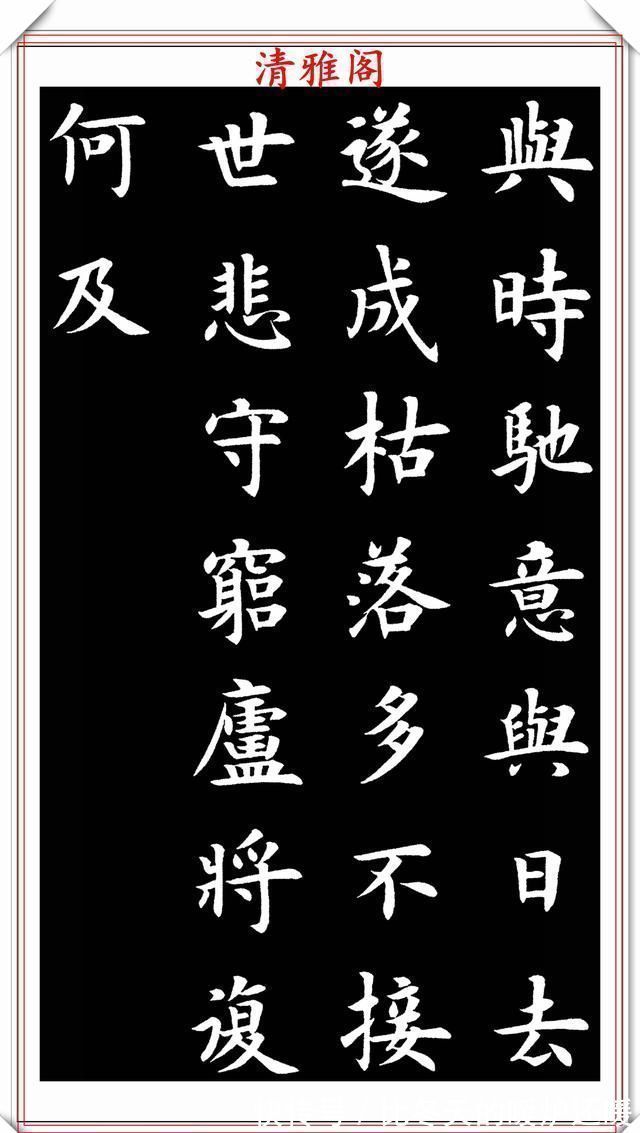 清雅阁
與時馳意與日去
遂成枯落多不接
世悲守窮廬將復
何及